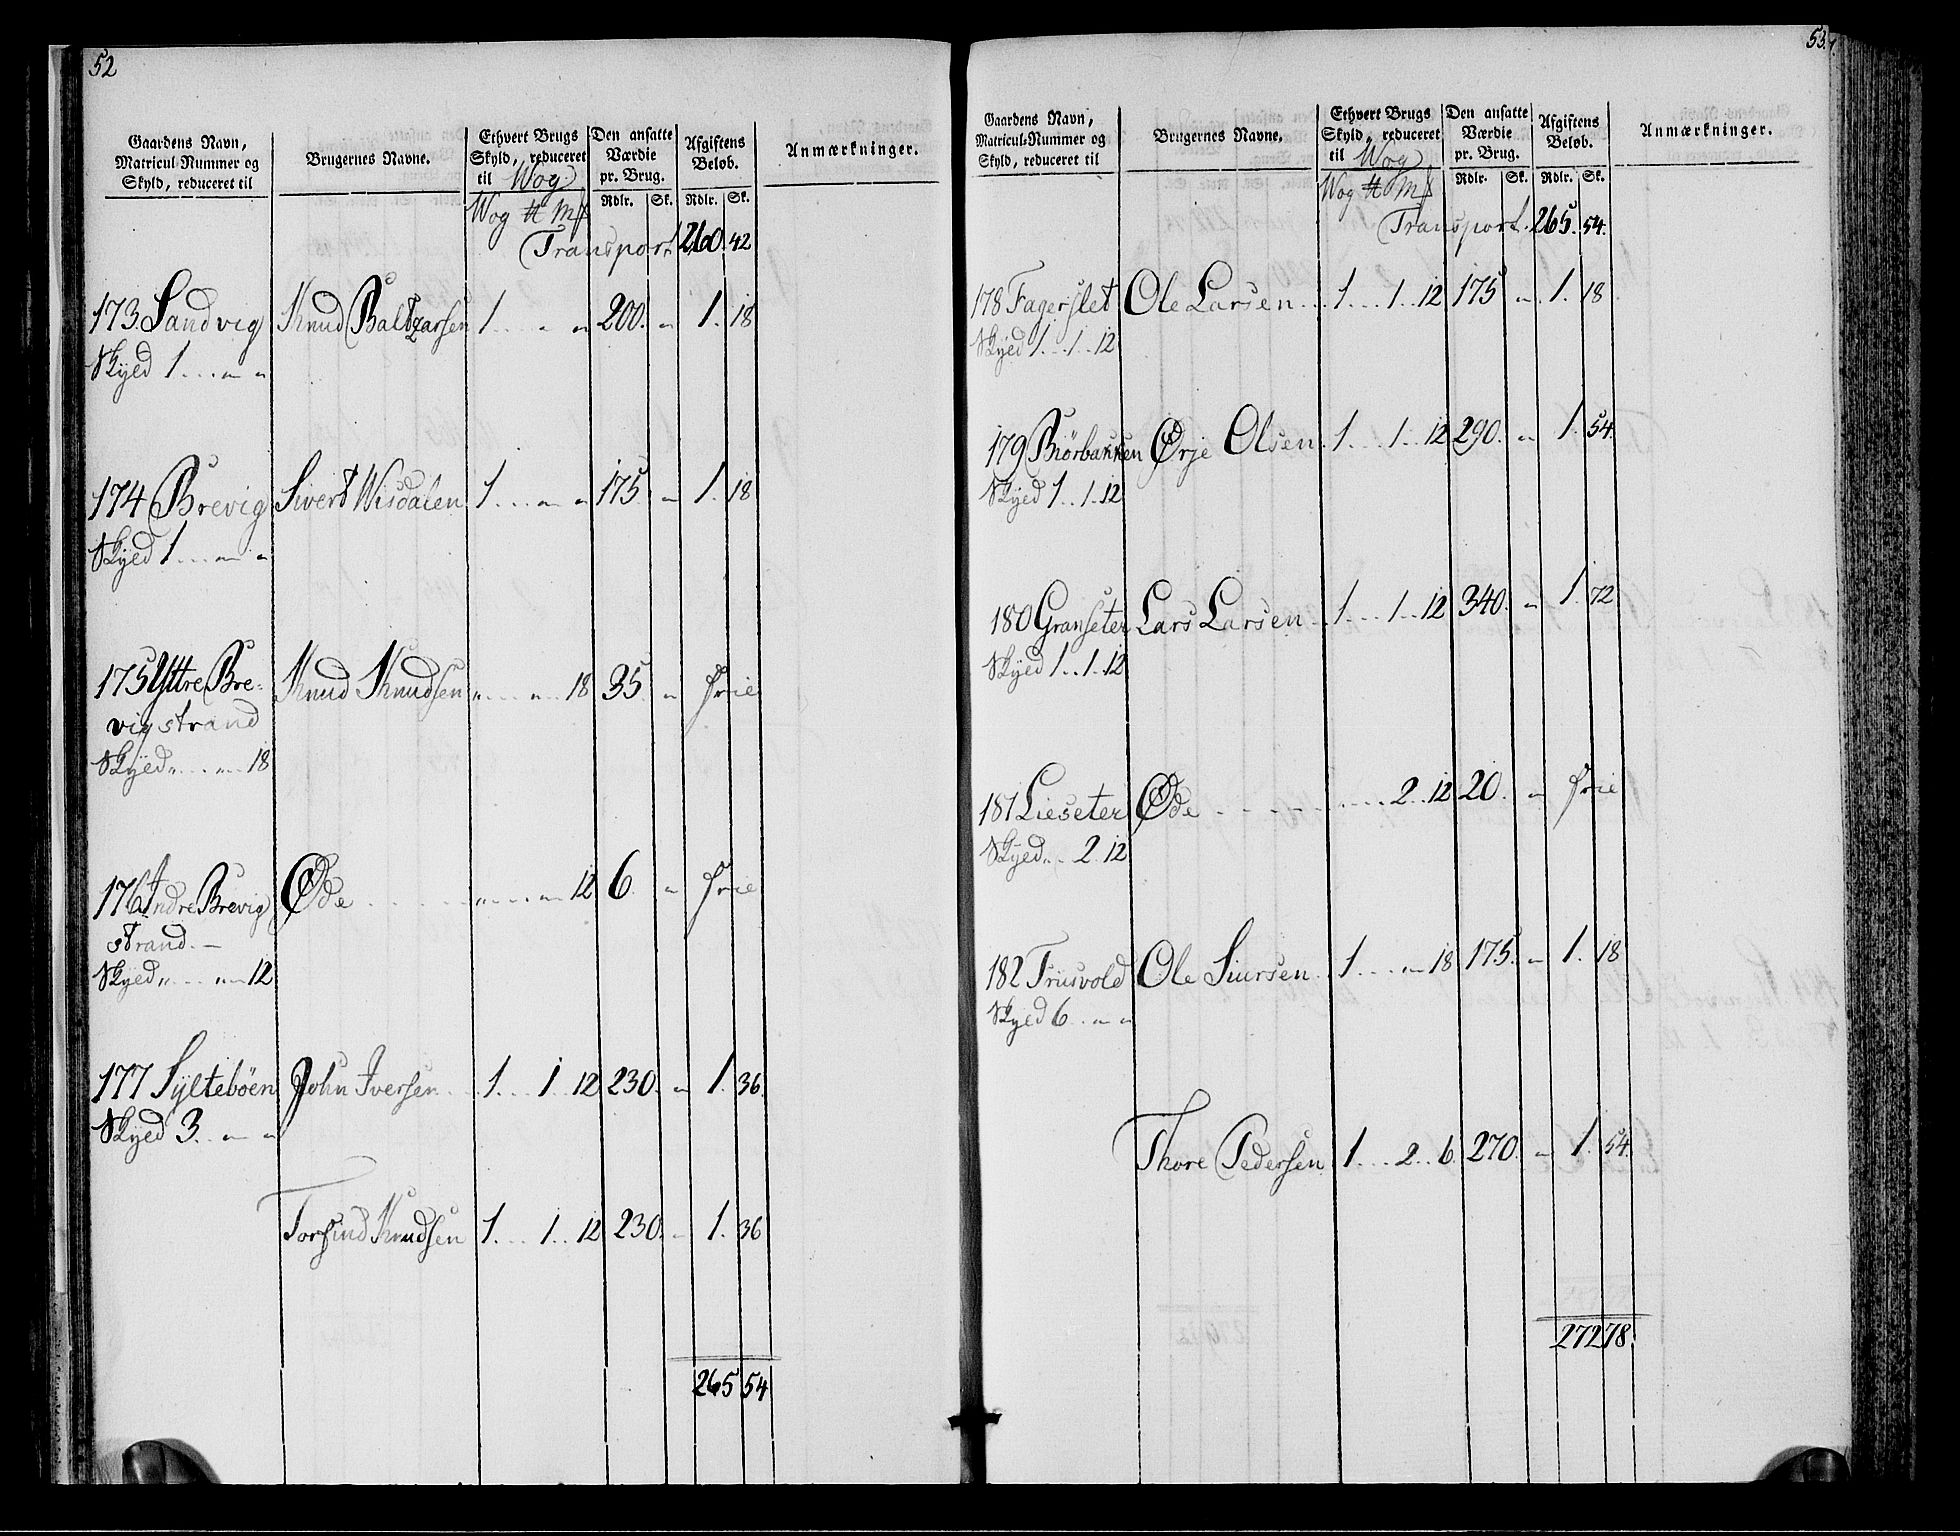 52
Gaardens Navn, Matricul-Nummer og Skyld, reduceret til
Brugernes Navne.
Ethvert Brugs Skyld, reduceret til Wog
Den ansatte Værdie pr. Brug.
Afgiftens Beløb.
Anmærkninger.
Rdlr. Sk. Rdlr. Sk.
Wog ℔ M
Transport 260. 42
173. Sandvig Knud Baltzarsen 1 . . . „ „ 200. „ 1. 18
Skyed 1 . . . „ „
174 Brevig Sivert Wisdalen 1 . . . „ „ 175. „ 1. 18
Skyed 1 . . . „ „
175 Yttre Bre- Knud Knudsen „ . . . „ . . 18 35. „ frie
vig strand
Skyed „ . . . „ . . 18
176 Indre Brevig Øde . . . . „ . . . „ 12 6. „ frie
strand. –
Skyed „ . . . „ 12
177 Syltebøen John Iversen . . 1. . . 1 12 230. „ 1. 36.
Skyed 3. . „ „
Torfind Knudsen 1. . . 1. . 12 230. „ 1. 36
265 54
53.
Gaardens Navn, Matricul-Nummer og Skyld, reduceret til
Brugernes Navne.
Ethvert Brugs Skyld, reduceret til Wog
Den ansatte Værdie pr. Brug.
Afgiftens Beløb.
Anmærkninger.
Rdlr. Sk. Rdlr. Sk.
Wog ℔ M
Transport. 265. 54.
178 Fagerslet Ole Larsen . . 1. . . 1. . 12 175 „ 1. 18.
Skyed 1 . . 1 . . 12
179 Biörbakken Ørje Olsen. 1. . . 1. . 12 290. „ 1. 54.
Skyed 1 . . 1 . . 12
180 Granseter Lars Larsen . . 1. . . 1. . 12 340. „ 1. 72
Skyed 1 . . 1 . . 12
181 Lieseter Øde - - - - . . . . 2 . . 12 20. „ frie
Skyed „ . . 2. 12
182 Trusvold Ole Siursen. . 1. . . „ 18 175. „ 1. 18
Skyed 6. . „ „
Thore Pedersen 1. . . 2. . 6. 270. „ 1. 54.
272 78.